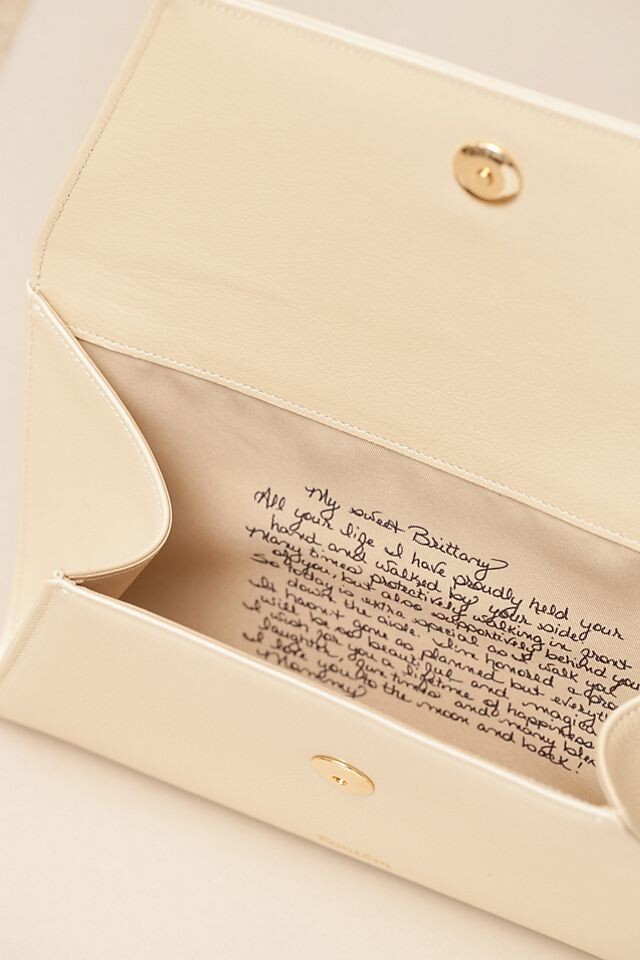 My sweet Brittany
All your life I have proudly held your
hand and walked by your side
Many times protectively walking in front
of you, but also supportively behind you
So today is extra special as I walk you
down the aisle. I'm honored & pro
It hasn't gone as planned but everyth
will be so beautiful and magica
I wish for you a lifetime of happiness
laughter, fun times and many bles
I love you to the moon and back!
Mommy